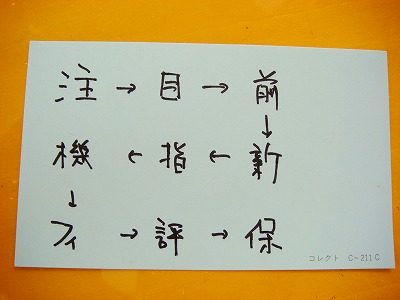 注 → 目 → 前
↓
機 ← 指 ← 新
↓
フィ → 評 → 保
コレクト C-211C